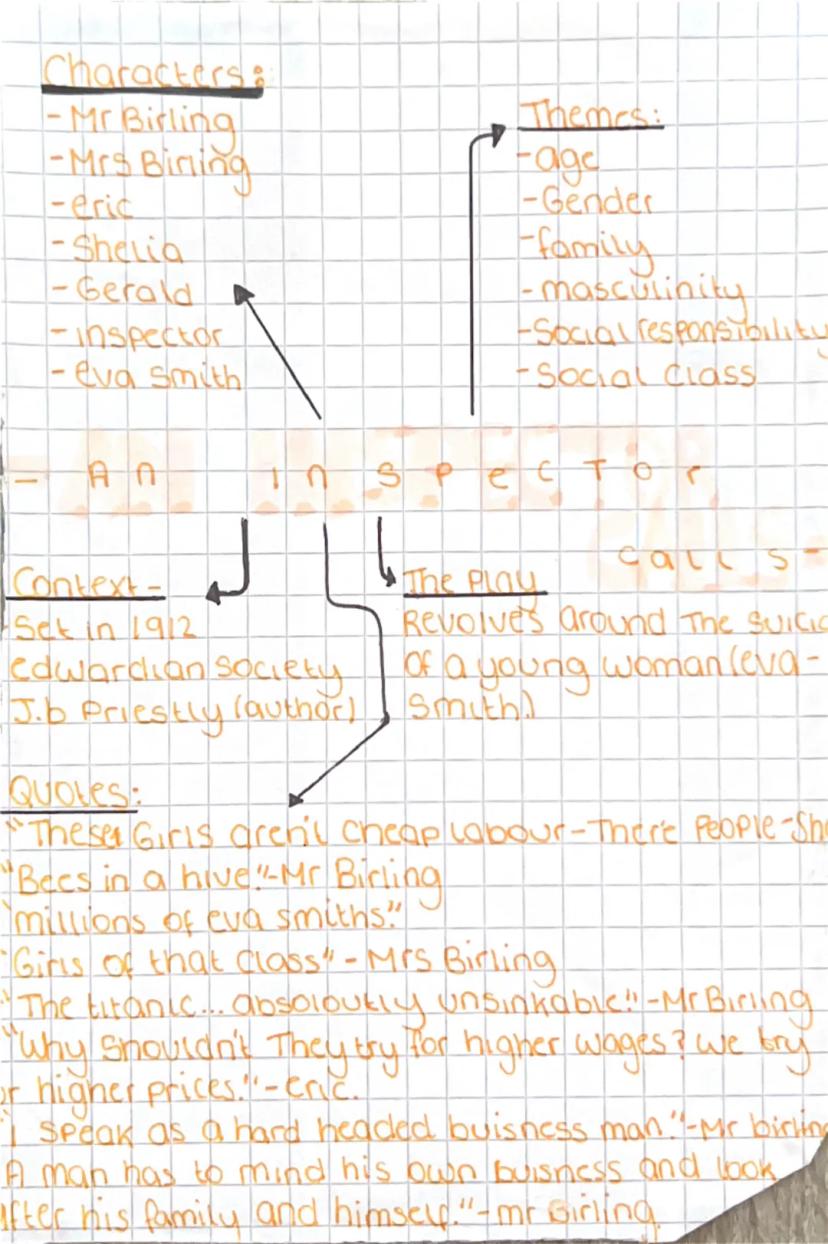 Characters:
- Mr Birling
- Mrs Birling
- eric
- Shelia
- Gerald
- inspector
- eva smith
Themes:
- age
- Gender
- family
- masculinity
- Social responsibility
- Social Class
- An inspector
calls -
Context -
Set in 1912
edwardian society
J.b Priestly (author)
The Play
Revolves around The suicid
of a young woman (eva-
Smith)
Quotes:
"These Girls aren't cheap labour - There People - Sh
"Bees in a hive." - Mr Birling
"millions of eva smiths."
"Girls of that Class" - Mrs Birling
"The titanic... absoloutly unsinkable." - Mr Birling
"Why Shouldn't They try for higher wages? We try
or higher prices." - eric.
I speak as a hard headed buisness man." - Mr birling
A man has to mind his own buisness and look
after his family and himself." - mr Birling